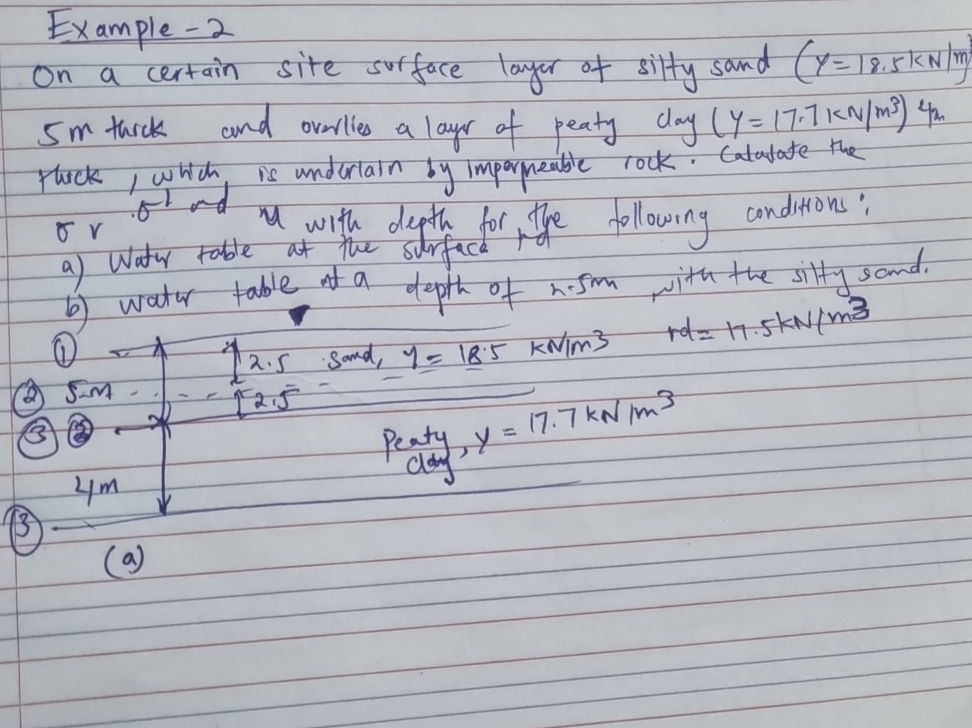 Example - 2
On a certain site surface layer of silty sand (γ = 18.5 kN/m³
5m thick and overlies a layr of peaty clay (γ = 17.7 kN/m³) 4m
thick, which is underlain by impermeable rock. Calculate the
σ r σ' and u with depth for the following conditions:
a) Water table at the surface
b) water table at a depth of 2.5m with the silty sand.
① 2.5 Sand, γ = 18.5 kN/m³ rd = 17.5 kN/m³
② 5m 2.5
③ ②
Peaty clay, γ = 17.7 kN/m³
4m
③
(a)